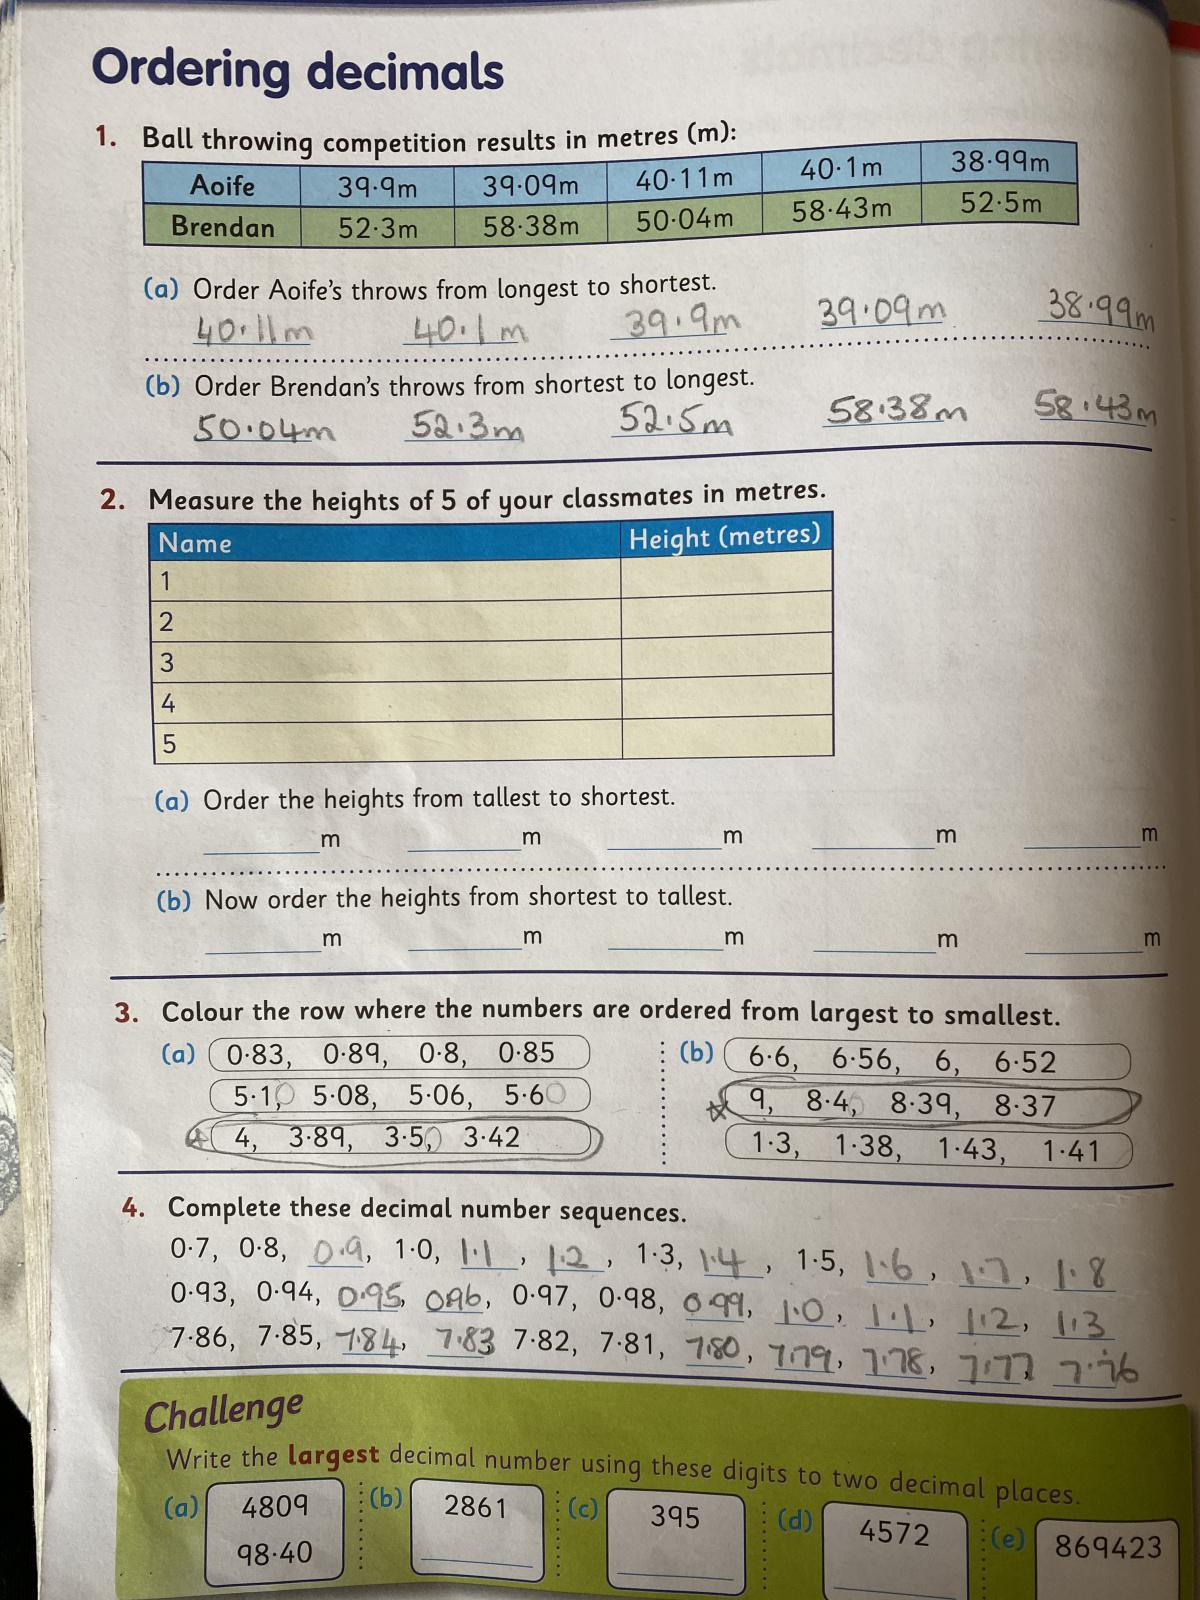 Ordering decimals
1. Ball throwing competition results in metres (m):
Aoife 39·9m 39·09m 40·11m 40·1m 38·99m
Brendan 52·3m 58·38m 50·04m 58·43m 52·5m
(a) Order Aoife's throws from longest to shortest.
40·11m 40·1m 39·9m 39·09m 38·99m
(b) Order Brendan's throws from shortest to longest.
50·04m 52·3m 52·5m 58·38m 58·43m
2. Measure the heights of 5 of your classmates in metres.
Name Height (metres)
1
2
3
4
5
(a) Order the heights from tallest to shortest.
m m m m m
(b) Now order the heights from shortest to tallest.
m m m m m
3. Colour the row where the numbers are ordered from largest to smallest.
(a) 0·83, 0·89, 0·8, 0·85
5·10, 5·08, 5·06, 5·60
4, 3·89, 3·50, 3·42
(b) 6·6, 6·56, 6, 6·52
9, 8·40, 8·39, 8·37
1·3, 1·38, 1·43, 1·41
4. Complete these decimal number sequences.
0·7, 0·8, 0·9, 1·0, 1·1, 1·2, 1·3, 1·4, 1·5, 1·6, 1·7, 1·8
0·93, 0·94, 0·95, 0·96, 0·97, 0·98, 0·99, 1·0, 1·1, 1·2, 1·3
7·86, 7·85, 7·84, 7·83 7·82, 7·81, 7·80, 7·79, 7·78, 7·77, 7·76
Challenge
Write the largest decimal number using these digits to two decimal places.
(a) 4809
98·40
(b) 2861
(c) 395
(d) 4572
(e) 869423